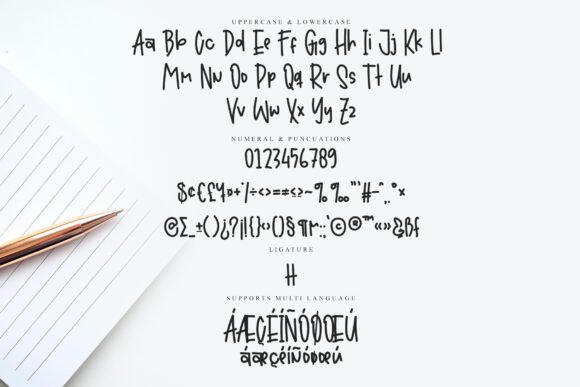 UPPERCASE & LOWERCASE
Aa Bb Cc Dd Ee Ff Gg Hh Ii Jj Kk Ll
Mm Nn Oo Pp Qq Rr Ss Tt Uu
Vv Ww Xx Yy Zz
NUMERAL & PUNCUATIONS
0123456789
$¢€£¥¤+⁄÷<>=≠≤≥~%‰"'#-^,.°*
@Σ_±()¿?¡!{}‹›()§¶:;'©®™«»&ßf
LIGATURE
H
SUPPORTS MULTI LANGUAGE
ÁÆÇÉÍÑÓØŒÚ
áæçéíñóøœú